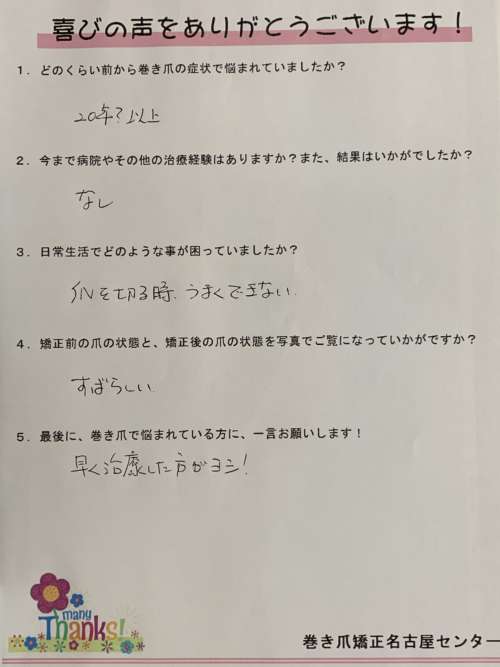 喜びの声をありがとうございます！
１．どのくらい前から巻き爪の症状で悩まれていましたか？
20年？以上
２．今まで病院やその他の治療経験はありますか？また、結果はいかがでしたか？
なし
３．日常生活でどのような事が困っていましたか？
爪を切る時、うまくできない、
４．矯正前の爪の状態と、矯正後の爪の状態を写真でご覧になっていかがですか？
すばらしい
５．最後に、巻き爪で悩まれている方に、一言お願いします！
早く治療した方がヨシ！
many
Thanks!
巻き爪矯正名古屋センター